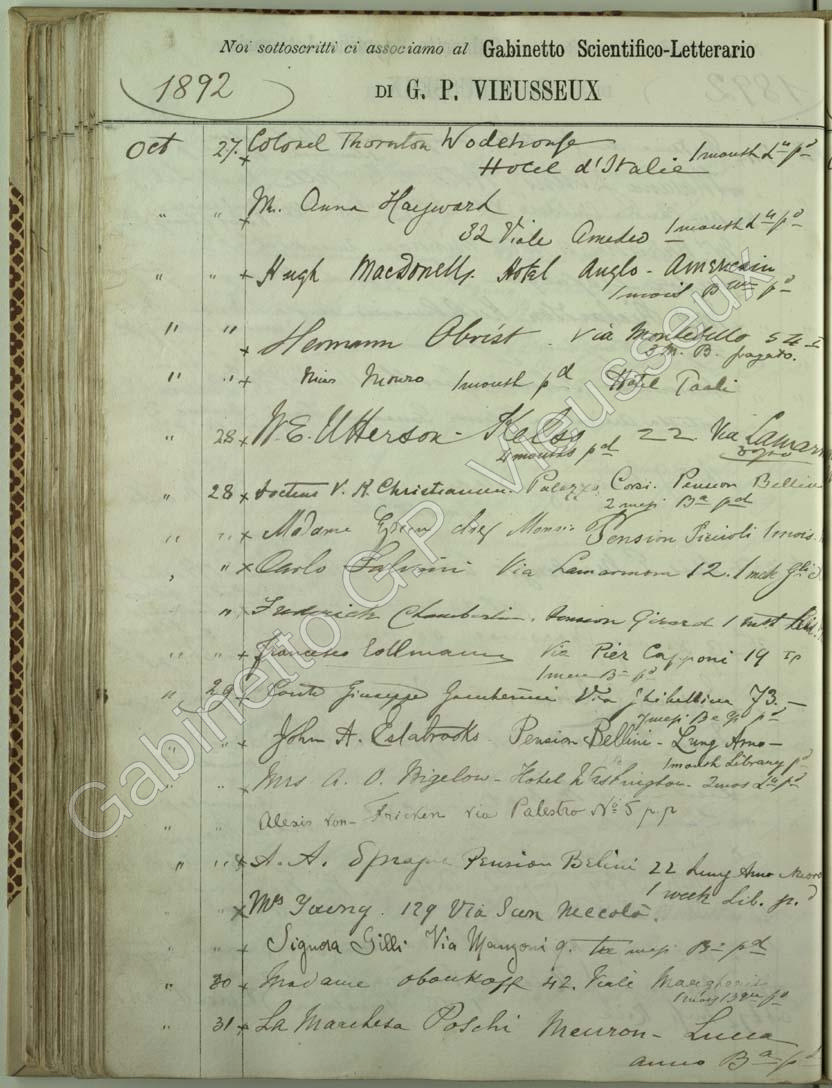 Noi sottoscritti ci associamo al Gabinetto Scientifico-Letterario
DI G. P. VIEUSSEUX
1892
Oct 27. x Colonel Thornton Wodehouse
Hotel d'Italie 1 month Ln pd
" " x M. Anna Hayward
32 Viale Amedeo 1 month Ln pd
" " x Hugh MacDonell. Hotel Anglo-Americain
1 mois pd
" " x Hermann Obrist. Via Montebello 54
3 M. B. pagato.
" " x Miss Monro 1 month pd Hotel Paoli
" 28 x W. E. Utterson-Kelso 22. Via Lamarm
4 months pd
" 28 x V. A. Christiansen. Palazzo Corsi. Pension Bellini
2 mesi Ba pd
" " x Madame chez Pension Piccioli 1 mois
" " x Carlo Salvini Via Lamarmora 12. 1
" Frederick Chamberlin. Pension Girard 1
" " x Francesco Kollmann Via Pier Capponi 19
" 29 x Conte Giuseppe Via Ghibellina 73.-
mesi B e G pd
" " x John A. Estabrooks. Pension Bellini- Lung Arno-
1 month Library pd
" " x Mrs A. O. Bigelow- Hotel Washington- 2 mos Ln pd
Alexis von Fricken via Palestro No 5 p.p
" " x A. A. Sprague Pension Belini 22 Lung Arno
1 week Lib. p.d
" x Mrs Young. 129 Via San Niccolò.
" " x Signora Gilli Via Manzoni 9. mesi Ba pd
" 30 x Madame 42. Viale Margherita
1 mois pd
" 31 x La Marchesa Poschi Meuron- Lucca
anno Ba pd
Gabinetto G.P. Vieusseux